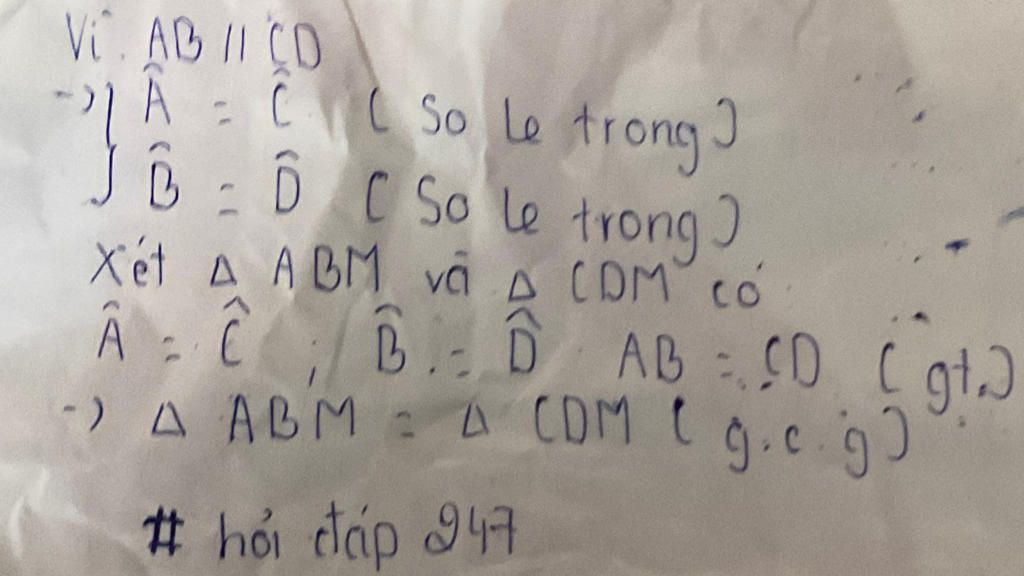 Vì AB // CD
-> } Â = Ĉ ( So le trong )
B̂ = D̂ ( So le trong )
Xét Δ ABM và Δ CDM có
Â = Ĉ ; B̂ = D̂ AB = CD ( gt )
-> Δ ABM = Δ CDM ( g.c.g )
# hỏi đáp 247